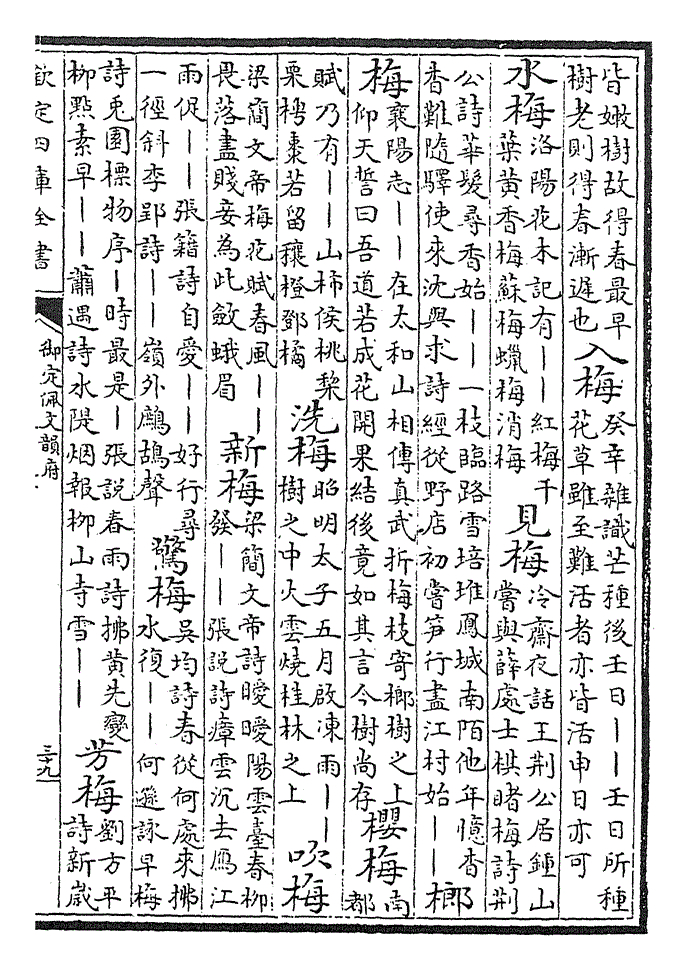 皆嫩樹故得春最早
樹老則得春漸遲也
入梅
癸辛雜識芒種後壬日——壬日所種
花草雖至難活者亦皆活申日亦可
水梅
洛陽花木記有——紅梅千
葉黄香梅蘇梅蠟梅消梅
見梅
冷齋夜話王荆公居鍾山
嘗與薛處士棋睹梅詩荆
公詩華髮尋香始——一枝臨路雪培堆鳳城南陌他年憶香
香難隨驛使來沈與求詩經從野店初嘗笋行盡江村始——
榔
梅
襄陽志——在太和山相傳真武折梅枝寄榔樹之上
仰天誓曰吾道若成花開果結後竟如其言今樹尚存
櫻梅
南
都
賦乃有——山柿侯桃棃
栗梬棗若留穰橙鄧橘
洗梅
昭明太子五月啟凍雨——
樹之中火雲燒桂林之上
吹梅
梁簡文帝梅花賦春風——
畏落盡賤妾為此斂蛾眉
新梅
梁簡文帝詩曖曖陽雲臺春柳
發——張説詩瘴雲沉去鴈江
雨促——張籍詩自愛——好行尋
一徑斜李郢詩——嶺外鷓鴣聲
驚梅
吳均詩春從何處來拂
水復——何遜詠早梅
詩兎園標物序—時最是—張説春雨詩拂黄先變
柳㸃素早——蕭遇詩水隄烟報柳山寺雪——
芳梅
劉方平
詩新歲
欽定四庫全書
御定佩文韻府
三十九